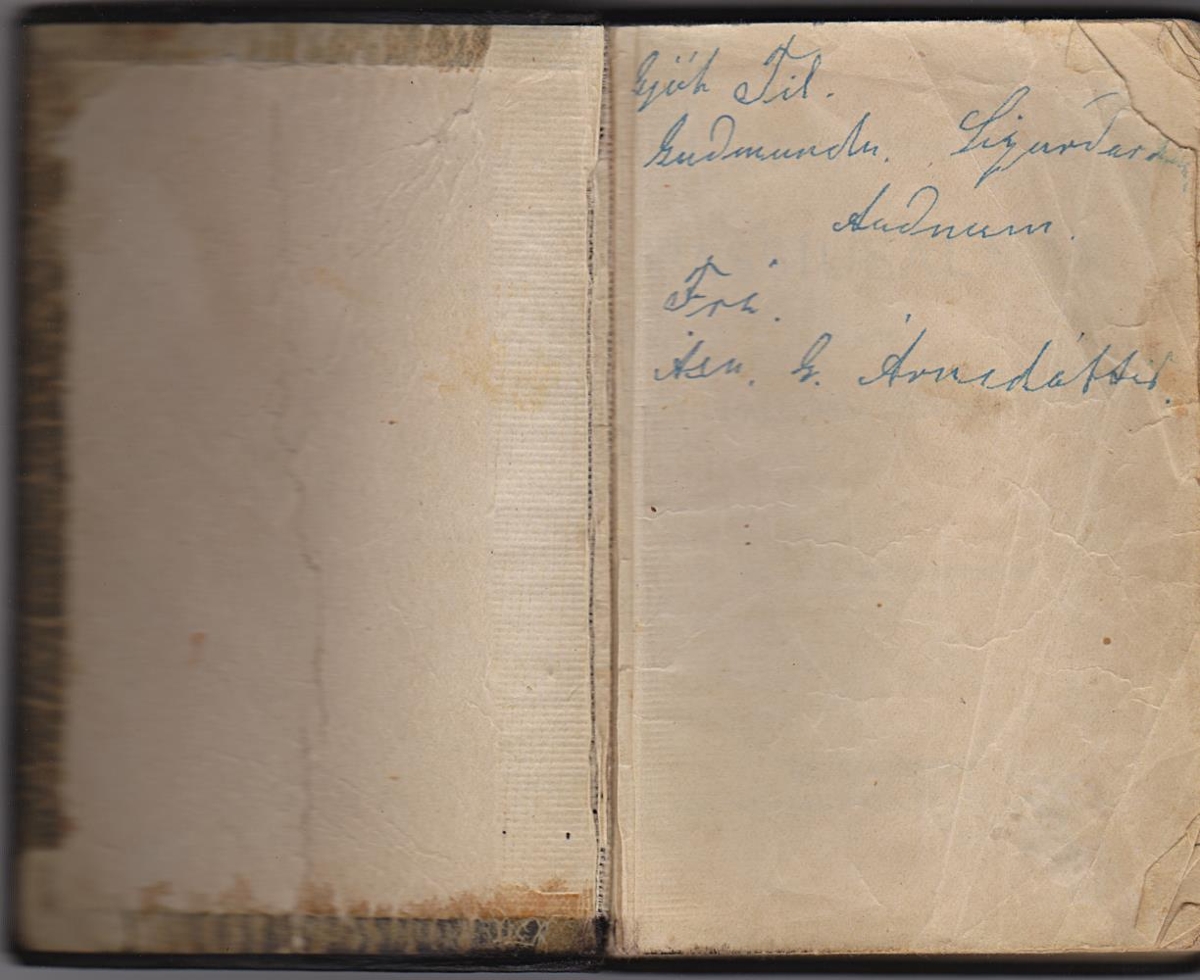 Gjöf Til.
Guðmundu. Sigurðar
Auðnum.
Frá.
Ásu. G. Árnadóttir.